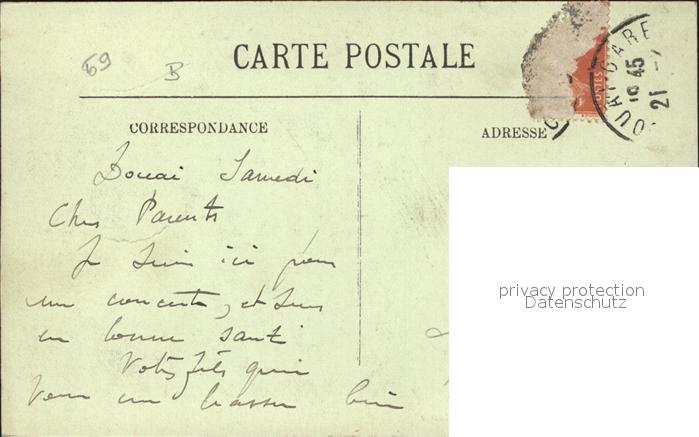 69
B
CARTE POSTALE
CORRESPONDANCE
ADRESSE
DOUAI GARE
18 45
21
POSTES
privacy protection
Datenschutz
Douai Samedi
Chers Parents
Je suis ici pour
un concerts, et suis
en bonne santé
Votre fils qui
vous embrasse bien